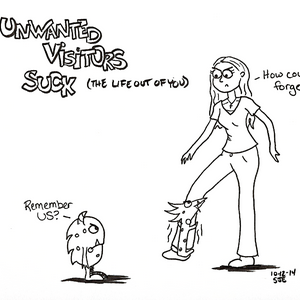 UNWANTED
VISITORS
SUCK (THE LIFE OUT OF YOU)
How cou
forge
Remember
US?
10-12-14